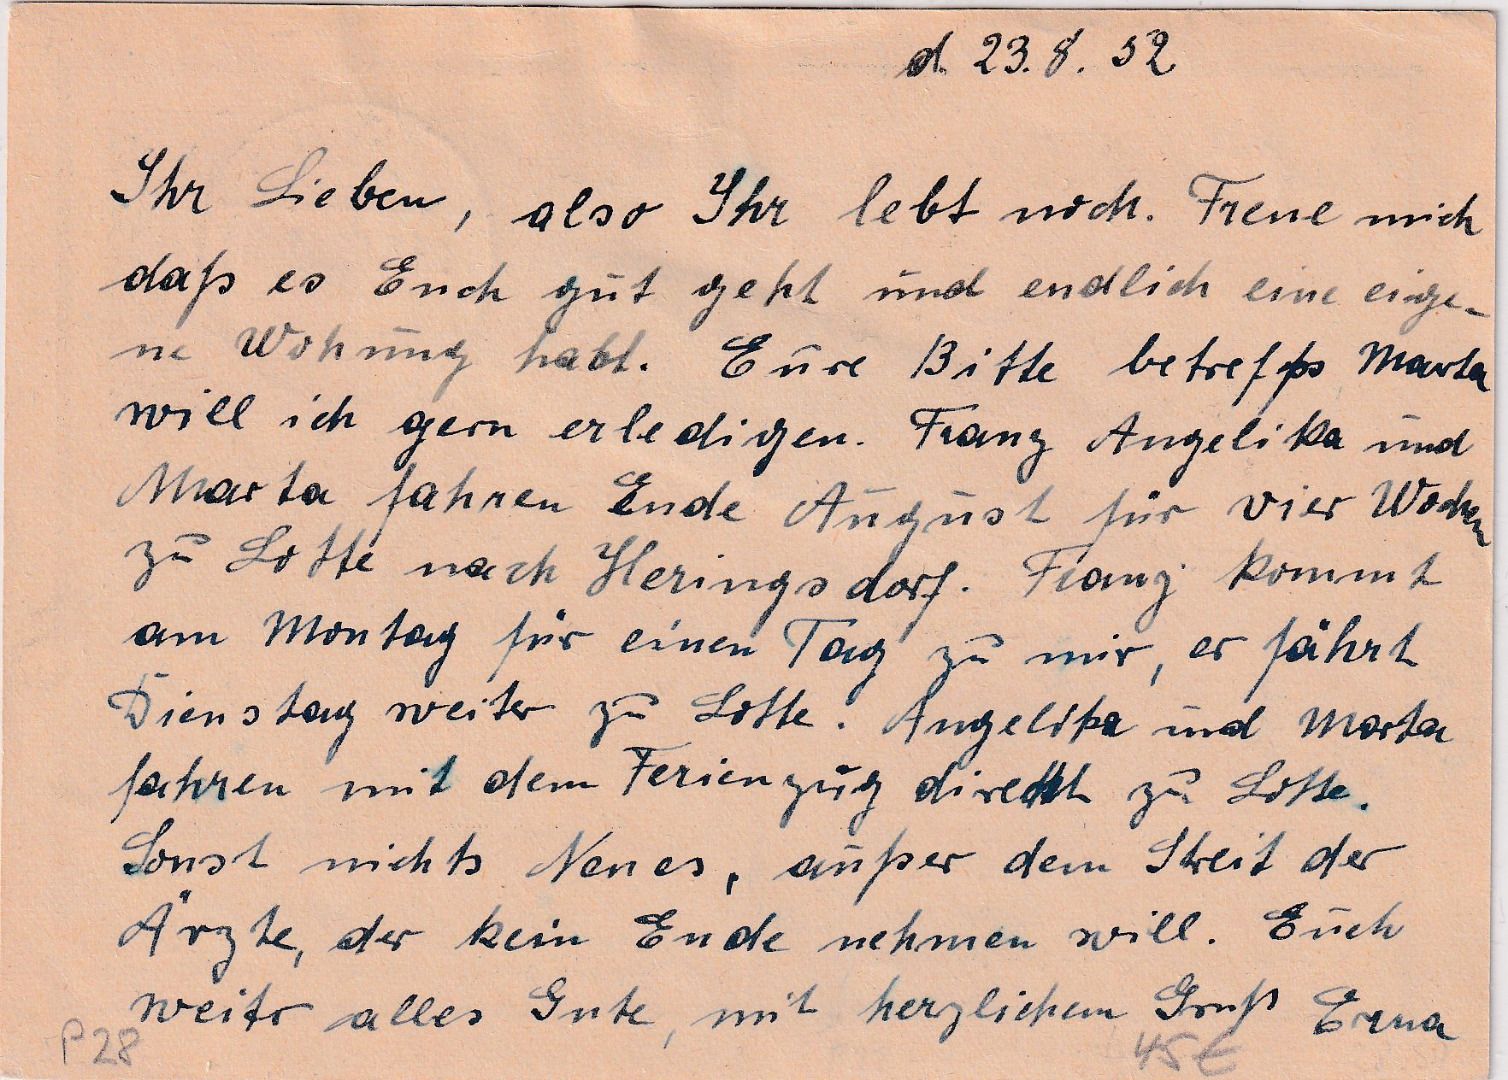 d. 23.8.52
Ihr Lieben, also Ihr lebt noch. Freue mich
daß es Euch gut geht und endlich eine eige-
ne Wohnung habt. Eure Bitte betreffs Marta
will ich gern erledigen. Franz Angelika und
Marta fahren Ende August für vier Wochen
zu Lotte nach Heringsdorf. Franz kommt
am Montag für einen Tag zu mir, er fährt
Dienstag weiter zu Lotte. Angelika und Marta
fahren mit dem Ferienzug direkt zu Lotte.
Sonst nichts Neues, außer dem Streit der
Ärzte, der kein Ende nehmen will. Euch
weiter alles Gute, mit herzlichem Gruß Erna
P28
45€